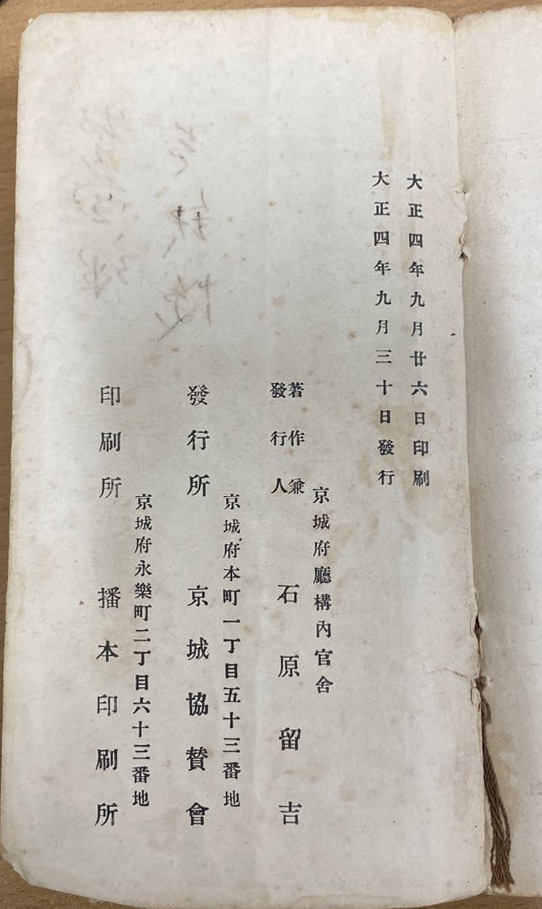 大正四年九月廿六日印刷
大正四年九月三十日發行
京城府廳構內官舍
著作兼
發行人
石原留吉
京城府本町一丁目五十三番地
發行所 京城協賛會
京城府永樂町二丁目六十三番地
印刷所 播本印刷所